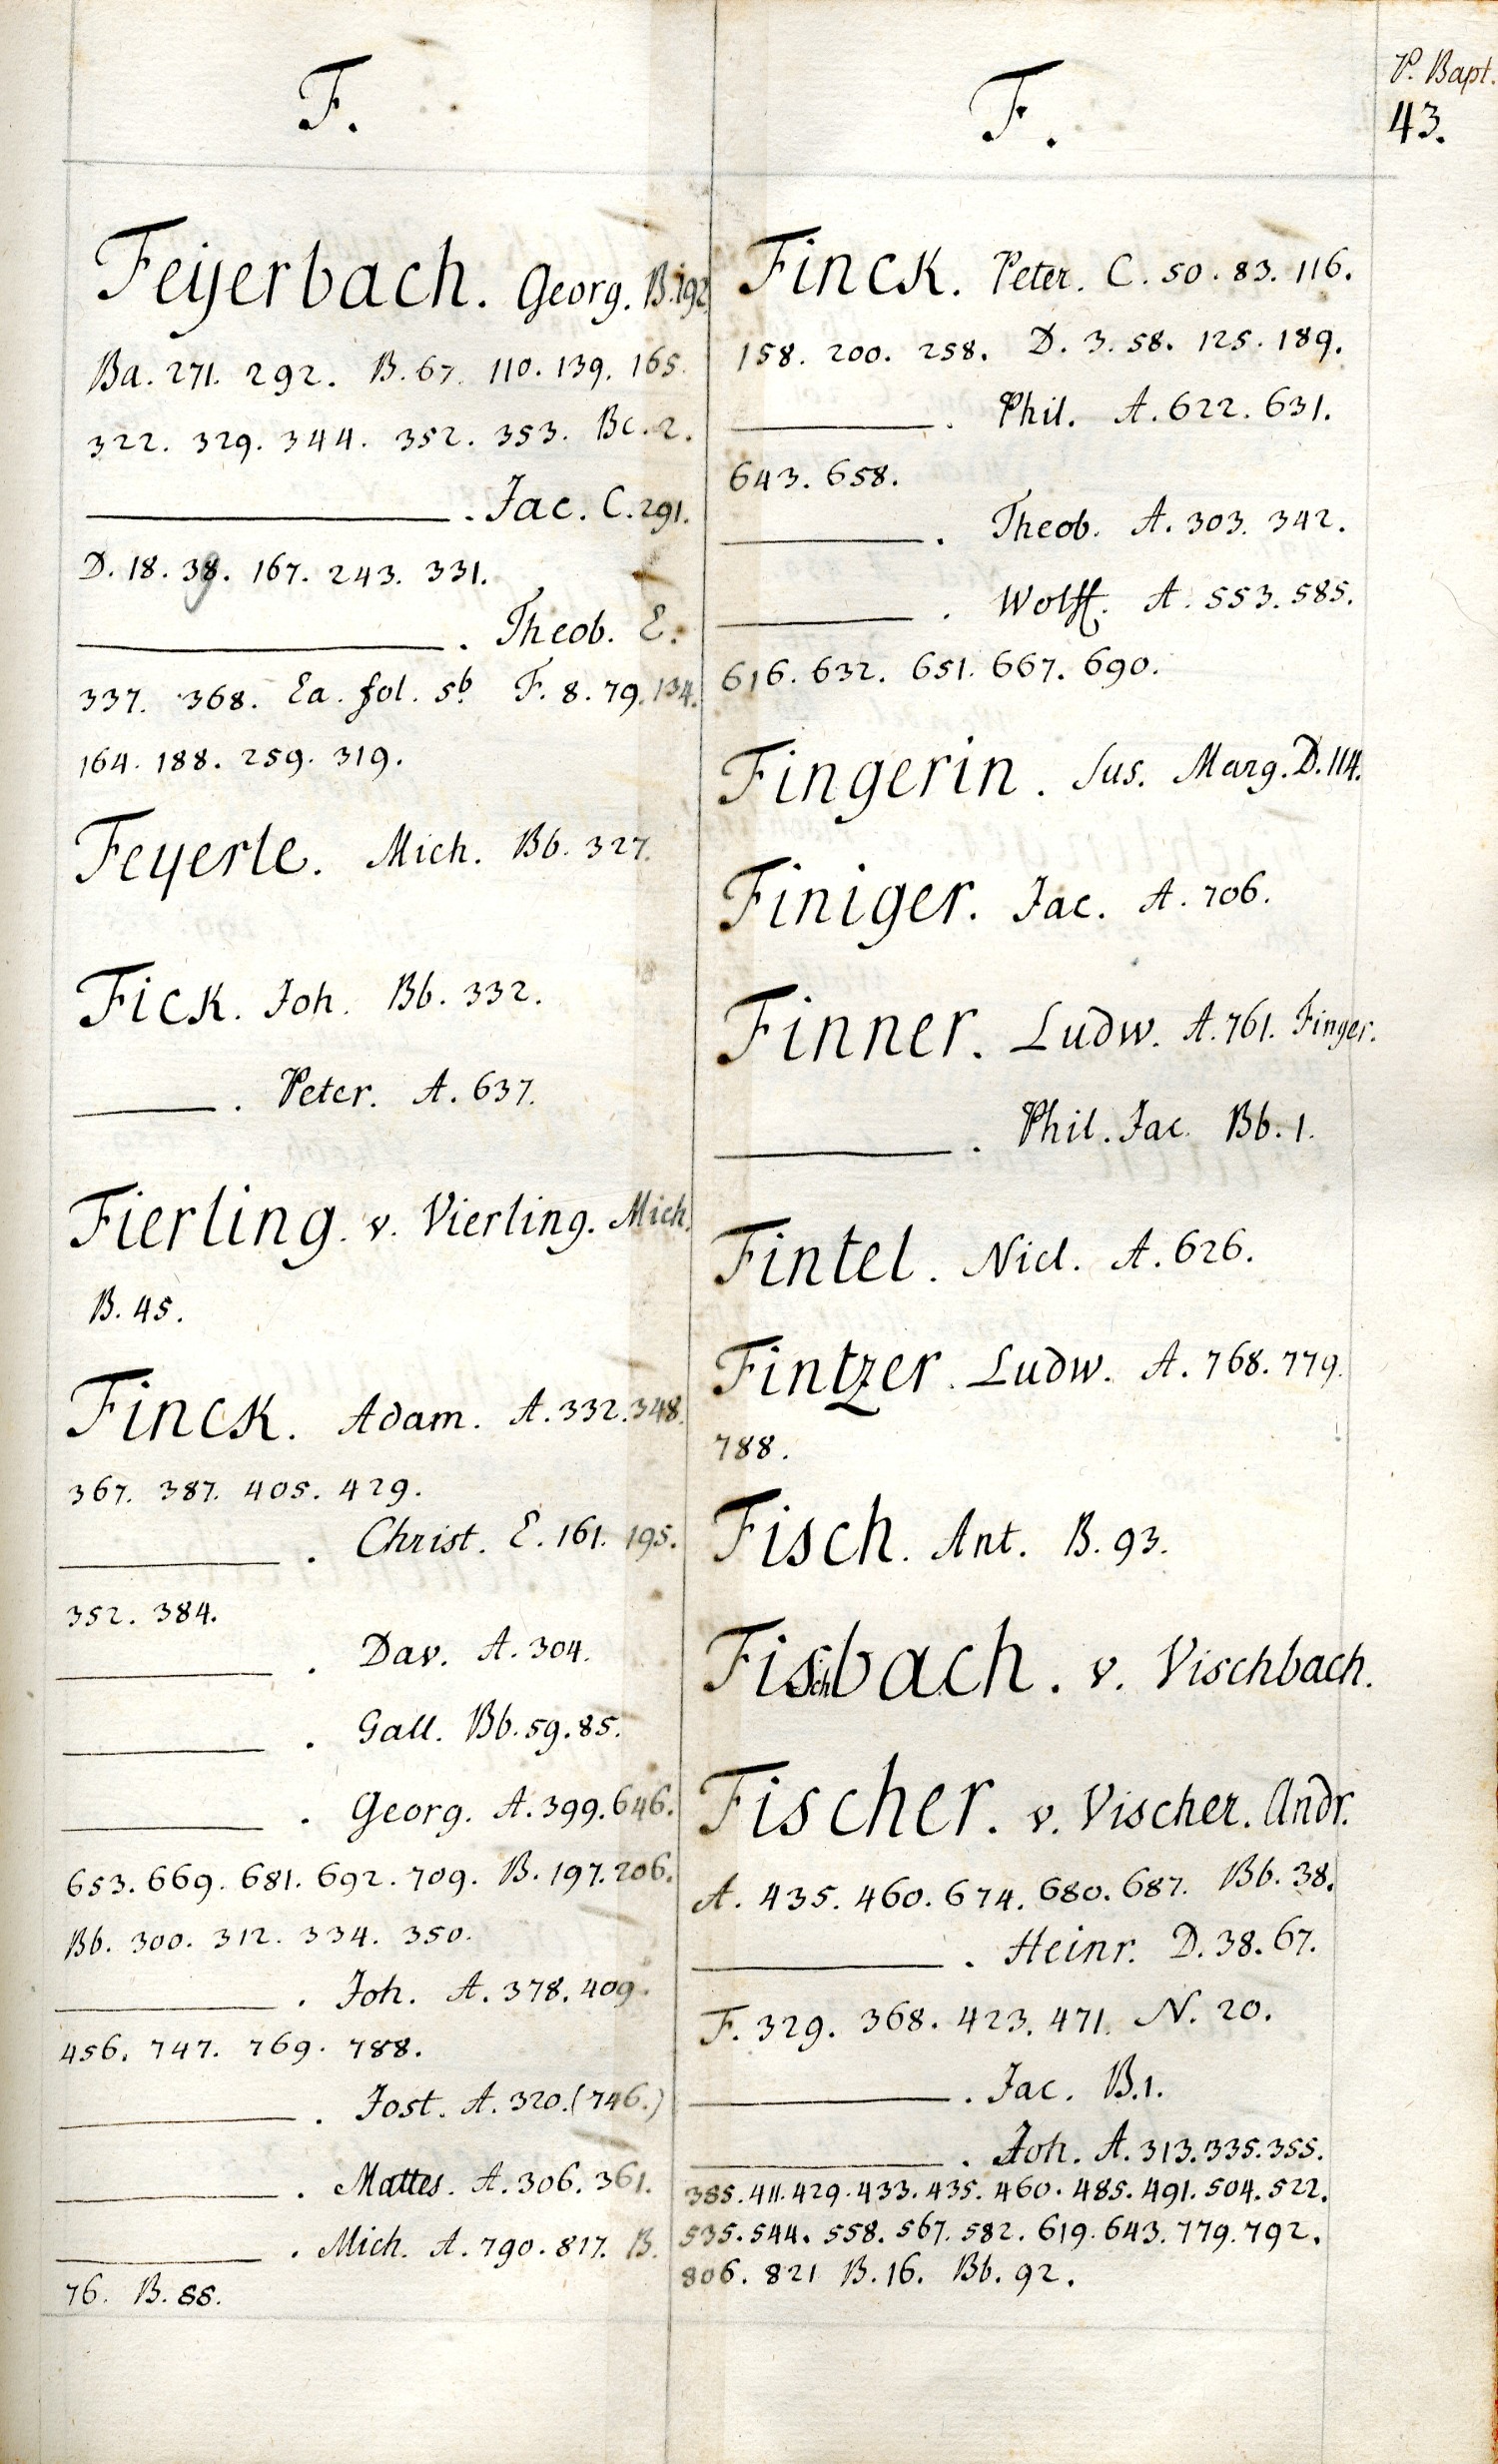 P. Bapt.
43.
F.
Feyerbach. Georg. B. 192.
Ba. 271. 292. B. 67. 110. 139. 165.
322. 329. 344. 352. 353. Bc. 2.
———. Jac. C. 291.
D. 18. 38. 167. 243. 331.
———. Theob. E.
337. 368. Ea. fol. 5b. F. 8. 79. 134.
164. 188. 259. 319.
Feyerle. Mich. Bb. 327.
Fick. Joh. Bb. 332.
———. Peter. A. 637.
Fierling. v. Vierling. Mich.
B. 45.
Finck. Adam. A. 332. 348.
367. 387. 405. 429.
———. Christ. E. 161. 195.
352. 384.
———. Dav. A. 304.
———. Gall. Bb. 59. 85.
———. Georg. A. 399. 646.
653. 669. 681. 692. 709. B. 197. 206.
Bb. 300. 312. 334. 350.
———. Joh. A. 378. 409.
456. 747. 769. 788.
———. Jost. A. 320. (746.)
———. Mattes. A. 306. 361.
———. Mich. A. 790. 817. B.
76. B. 88.
F.
Finck. Peter. C. 50. 83. 116.
158. 200. 258. D. 3. 58. 125. 189.
———. Phil. A. 622. 631.
643. 658.
———. Theob. A. 303. 342.
———. Wolff. A. 553. 585.
616. 632. 651. 667. 690.
Fingerin. Sus. Marg. D. 114.
Finiger. Jac. A. 706.
Finner. Ludw. A. 761. Finger.
———. Phil. Jac. Bb. 1.
Fintel. Nicl. A. 626.
Fintzer. Ludw. A. 768. 779.
788.
Fisch. Ant. B. 93.
Fischbach. v. Vischbach.
Fischer. v. Vischer. Andr.
A. 435. 460. 674. 680. 687. Bb. 38.
———. Heinr. D. 38. 67.
F. 329. 368. 423. 471. N. 20.
———. Jac. B. 1.
———. Joh. A. 313. 335. 355.
385. 411. 429. 433. 435. 460. 485. 491. 504. 522.
535. 544. 558. 567. 582. 619. 643. 779. 792.
806. 821 B. 16. Bb. 92.